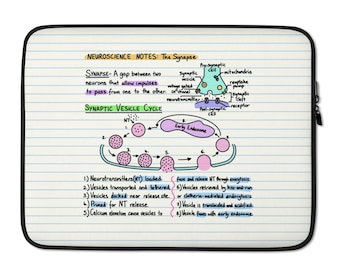 NEUROSCIENCE NOTES: The Synapse
SYNAPSE- A gap between two
neurons that allow impulses
to pass from one to the other.
Pre-synaptic
cell
mitochondria
Synaptic
vesicle
voltage gated
Ca+ channel
neurotransmitter
reuptake
pump
synaptic
cleft
receptor
Post-synaptic
cell
SYNAPTIC VESICLE CYCLE
NT
Early Endosome
1.
2.
3.
4.
5.
6.
7.
8.
1) Neurotransmitters (NT) loaded.
2) Vesicles transported and tethered.
3) Vesicles docked near release site.
4) Primed for NT release.
5) Calcium elevation cause vesicles to
fuse and release NT through exocytosis
6) Vesicle retrieved by kiss-and-run
or clathrin-mediated endocytosis
7) Vesicle is translocated and acidified
8) Vesicle fuses with early endosome.